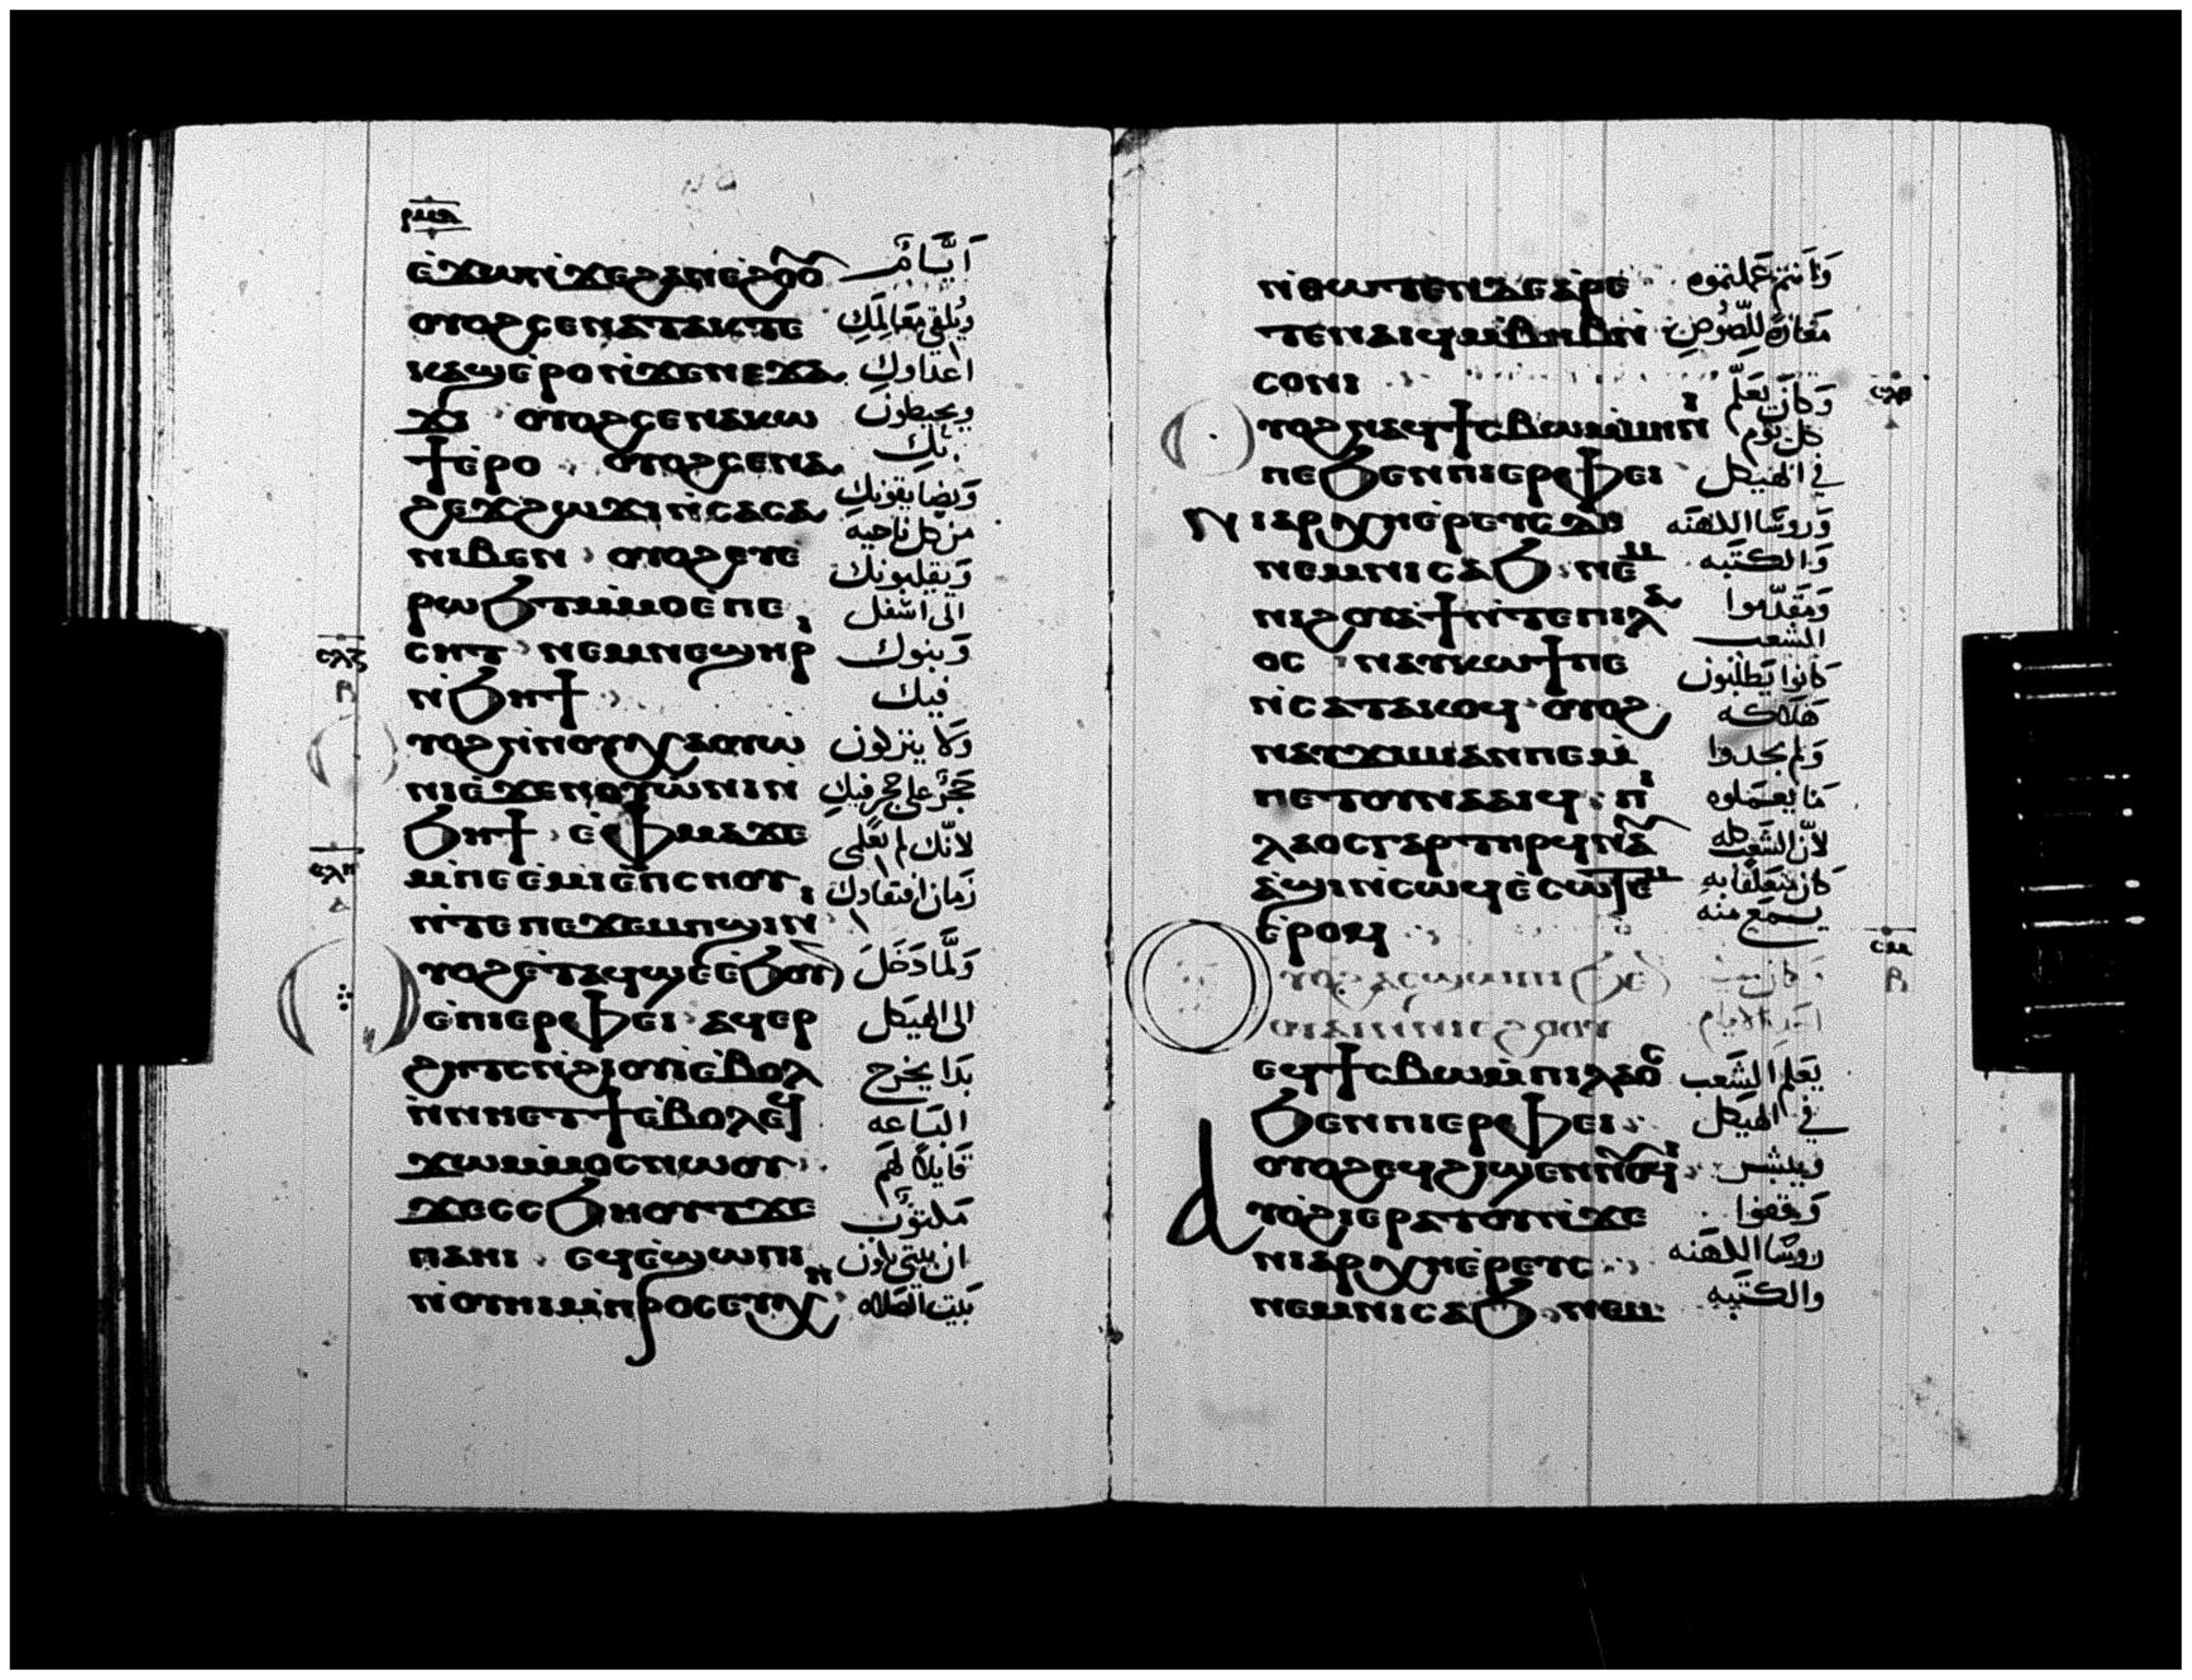 ⲉ̀ϫⲱⲛ̀ϫⲉϩⲁⲛⲉ̀ϩⲟⲟ̅ أيّام
ⲟⲩⲟϩⲥⲉⲛⲁⲧⲁⲕⲧⲉ ويُلقى مَعَالمك
ⲕⲁϣⲉ̀ⲣⲟⲛ̀ϫⲉⲛⲉϫⲁ اعداوك
ϫⲓ ⲟⲩⲟϩⲥⲉⲛⲁⲕⲱ ويحيطون
ϯⲉ̀ⲣⲟ ⲟⲩⲟϩⲥⲉⲛⲁ بك
ϩⲉϫϩⲱϫⲓⲛ̀ⲥⲁⲥⲁ وَيضايقونك من كل ناحيه
ⲛⲓⲃⲉⲛ ⲟⲩⲟϩⲉⲩⲉ وَيقلبونك
ⲣⲱϧⲧⲙ̀ⲙⲟⲉ̀ⲡⲉ الى اسفل
ⲥⲏⲧ ⲛⲉⲙⲛⲉϣⲏⲣⲓ وَبنوك
ⲛ̀ϧⲏϯ فيك
ⲩⲟϩⲛ̀ⲛⲟⲩⲭⲁⲟⲩⲱ وَلا ينزلون
ⲛⲓⲉ̀ϫⲉⲛⲟⲩⲱ̀ⲛⲓⲛ̀ حَجَرٌ على حجر فيك
ϧⲏϯ ⲉⲫⲙⲁϫⲉ لانّك لم تعلمى
ⲙ̀ⲡⲉⲉ̀ⲙⲓⲉ̀ⲡⲥⲏⲟⲩ زمان افتقادك
ⲛ̀ⲧⲉⲡⲉϫⲉⲙⲡϣⲓⲛⲓ
ⲥⲗⲏ
ⲩⲟϩⲉ̀ⲧⲁϥϣⲉⲉ̀ϧⲟⲩ̅ وَلمَّا دَخَلَ
ⲉ̀ⲡⲓⲉⲣⲫⲉⲓ ⲁϥⲉⲣ الى الهيكل
ϩⲏⲧⲥⲛ̀ϩⲓⲟⲩⲓ̀ⲉ̀ⲃⲟⲗ بَدا يخرج
ⲛ̀ⲛⲏⲉⲧϯⲉ̀ⲃⲟⲗⲉϥ البَاعه
ϫⲱⲙ̀ⲙⲟⲥⲛⲱⲟⲩ قايلاً لهَم
ϫⲉⲥⲥϧⲏⲟⲩⲧϫⲉ مَكتوب
ⲡⲁⲏⲓ ⲉϥⲉ̀ϣⲱⲡⲓ ان بيتى يكون
ⲛ̀ⲟⲩⲏⲓⲙ̀ⲡⲣⲟⲥⲉⲩⲭⲏ بَيت الصَلاه
ⲛ̀ⲑⲱⲧⲉⲛⲇⲉⲁ̀ⲣⲉ وَانتم عملتموه
ⲧⲉⲛⲁⲓϥⲙ̀ⲃⲏⲃⲛ̀ مَغارة للّصُوص
ⲥⲟⲛⲓ
ⲥⲗⲑ
ⲩⲟϩⲛⲁϥϯⲥⲃⲱⲙ̀ⲙⲏⲛⲓ وَكانَ يَعلّم كل يَوم
ⲡⲉϧⲉⲛⲡⲓⲉⲣⲫⲉⲓ في الهيكل
ⲛⲓⲁⲣⲭⲏⲉ̀ⲣⲉⲩⲥⲇⲉ وَروسَا الكهنَه
ⲛⲉⲙⲛⲓⲥⲁϧ ⲛⲉⲙ وَالكتَبه
ⲛⲓϩⲟⲩⲁϯⲛ̀ⲧⲉⲡⲓⲗⲁ وَمقَدّموا الشعب
ⲟⲥ ⲛⲁⲩⲕⲱϯⲡⲉ كانوا يَطلبُون
ⲛ̀ⲥⲁⲧⲁⲕⲟϥ ⲟⲩⲟϩ هَلاكه
ⲛⲁⲩϫⲓⲙⲓⲁⲛⲡⲉⲙ̀ وَلم يجدوا
ⲡⲉⲧⲟⲩⲛⲁⲁⲓϥ ⲡⲓ مَا يعمَلوه
ⲗⲁⲟⲥⲅⲁⲣⲧⲏⲣϥⲛⲁ̅ لأنّ الشَعب كله
ⲁ̀ϣⲓⲛ̀ⲥⲱϥⲉ̀ⲥⲱⲧⲉⲙ كان متعَلقًا به يسمَع منه
ⲉ̀ⲣⲟϥ
ⲥⲙ
ⲩⲟϩⲁⲥϣⲱⲡⲓ(ϧⲉ) وكان في
ⲟⲩⲁⲓⲛ̀ⲛⲓⲉϩⲟⲟⲩ احَد الايام
ⲉϥϯⲥⲃⲱⲙ̀ⲡⲓⲗⲁⲟⲥ يَعلم الشَعب
ϧⲉⲛⲡⲓⲉⲣⲫⲉⲓ في الهيكل
ⲟⲩⲟϩⲉϥϩⲓϣⲉⲛⲛⲟⲩϥⲓ ويبشر
ⲁⲩⲟϩⲓⲉ̀ⲣⲁⲧⲟⲩⲛ̀ϫⲉ وَقفوا
ⲛⲓⲁⲣⲭⲏⲉ̀ⲣⲉⲩⲥ روسَا الكهَنه
ⲛⲉⲙⲛⲓⲥⲁϧ ⲛⲉⲙ والكتَبه